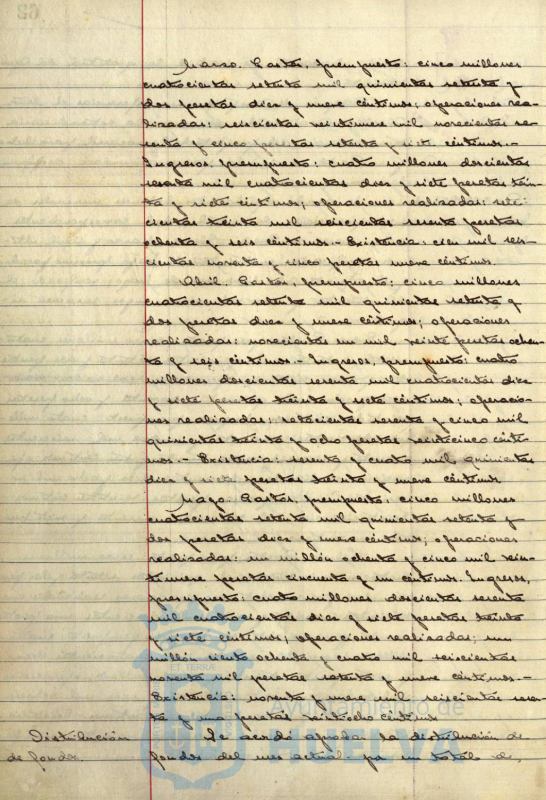 62
Marzo. Gastos, presupuesto: cinco millones
cuatrocientas setenta mil quinientas setenta y
dos pesetas diez y nueve céntimos; operaciones rea-
lizadas: seiscientas veintinueve mil novecientas se-
senta y cinco pesetas setenta y siete céntimos.-
Ingresos, presupuesto: cuatro millones doscientas
sesenta mil cuatrocientas diez y siete pesetas trein-
ta y siete céntimos; operaciones realizadas: sete-
cientas treinta mil seiscientas sesenta pesetas
ochenta y seis céntimos.- Existencia: cien mil seis-
cientas noventa y cinco pesetas nueve céntimos.
Abril. Gastos, presupuesto: cinco millones
cuatrocientas setenta mil quinientas setenta y
dos pesetas diez y nueve céntimos; operaciones
realizadas: novecientas un mil veinte pesetas ochen-
ta y seis céntimos.- Ingresos, presupuesto: cuatro
millones doscientas sesenta mil cuatrocientas diez
y siete pesetas treinta y siete céntimos; operacio-
nes realizadas: novecientas sesenta y cinco mil
quinientas treinta y ocho pesetas veinticinco cénti-
mos.- Existencia: sesenta y cuatro mil quinientas
diez y siete pesetas treinta y nueve céntimos
Mayo. Gastos, presupuesto: cinco millones
cuatrocientas setenta mil quinientas setenta y
dos pesetas diez y nueve céntimos; operaciones
realizadas: un millón ochenta y cinco mil vein-
tinueve pesetas cincuenta y un céntimos. Ingresos,
presupuesto: cuatro millones doscientas sesenta
mil cuatrocientas diez y siete pesetas treinta
y siete céntimos; operaciones realizadas; un
millón ciento ochenta y cuatro mil seiscientas
noventa mil pesetas setenta y nueve céntimos.-
Existencia: noventa y nueve mil seiscientas sesen-
ta y una pesetas veintiocho céntimos
Distribución de fondos.
Se acordó aprobar la distribución de
fondos del mes actual por un total de,
ET TERRA
Ayuntamiento de
HUELVA